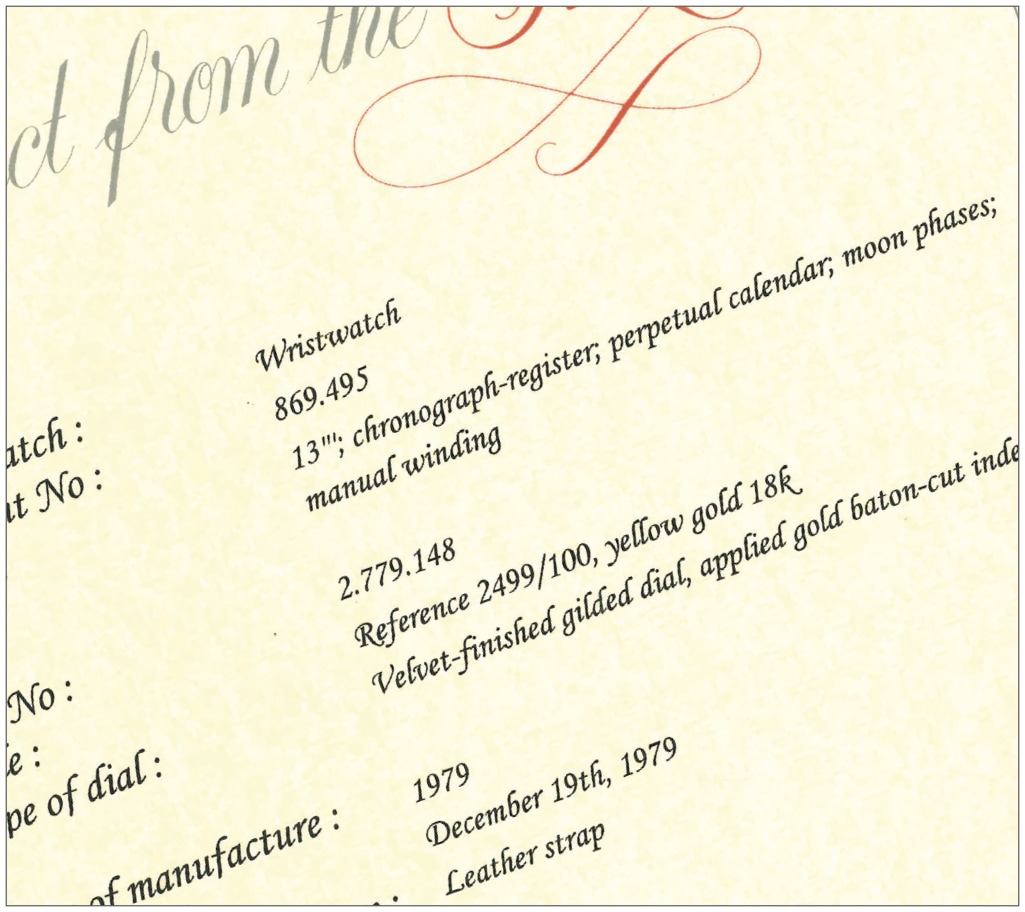 ct from the
Wristwatch
atch : 869.495
nt No : 13'''; chronograph-register; perpetual calendar; moon phases;
manual winding
No : 2.779.148
e : Reference 2499/100, yellow gold 18k
pe of dial : Velvet-finished gilded dial, applied gold baton-cut inde
of manufacture : 1979
: December 19th, 1979
Leather strap